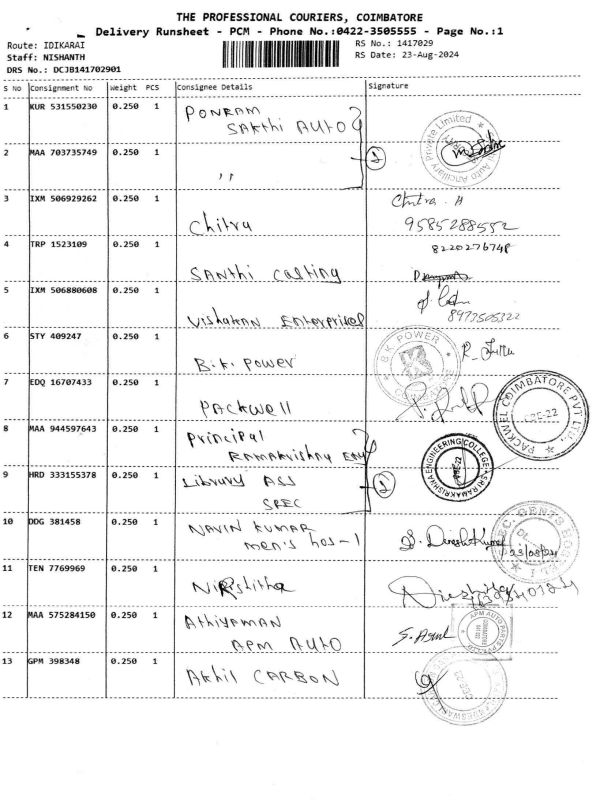 THE PROFESSIONAL COURIERS, COIMBATORE
Delivery Runsheet - PCM - Phone No.:0422-3505555 - Page No.:1
Route: IDIKARAI
RS No.: 1417029
Staff: NISHANTH
RS Date: 23-Aug-2024
DRS No.: DCJB141702901
S No Consignment No Weight PCS Consignee Details Signature
1 KUR 531550230 0.250 1 PONRAM
SAKthi AUTO
Private Limited
2 MAA 703735749 0.250 1 ,,
2
3 IXM 506929262 0.250 1 Chitra
Chitra. H
9585288552
4 TRP 1523109 0.250 1 SANthi casting
8220276748
5 IXM 506880608 0.250 1 Vishakan Enterprises
8973505322
6 STY 409247 0.250 1 B.K. Power
B.K. POWER
7 EDQ 16707433 0.250 1 PACKwell
PACKWEL COIMBATORE PVT LTD.
CBE-22
8 MAA 944597643 0.250 1 Principal
RAMAKrishna
SRI RAMAKRISHNA ENGINEERING COLLEGE
CBE-22
9 HRD 333155378 0.250 1 Library ASS
SREC
2
10 DDG 381458 0.250 1 NAVIN KUMAR
men's hos-1
S. Dinesh Kumar
23/08/24
11 TEN 7769969 0.250 1 Nirishitha
12 MAA 575284150 0.250 1 Athiyaman
APM AUTO
APM AUTO PARTS
COIMBATORE
13 GPM 398348 0.250 1 Akhil CARBON
CBE-22